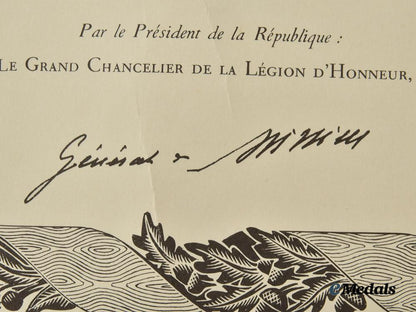 Par le Président de la République :
LE GRAND CHANCELIER DE LA LÉGION D'HONNEUR,
Général
eMedals